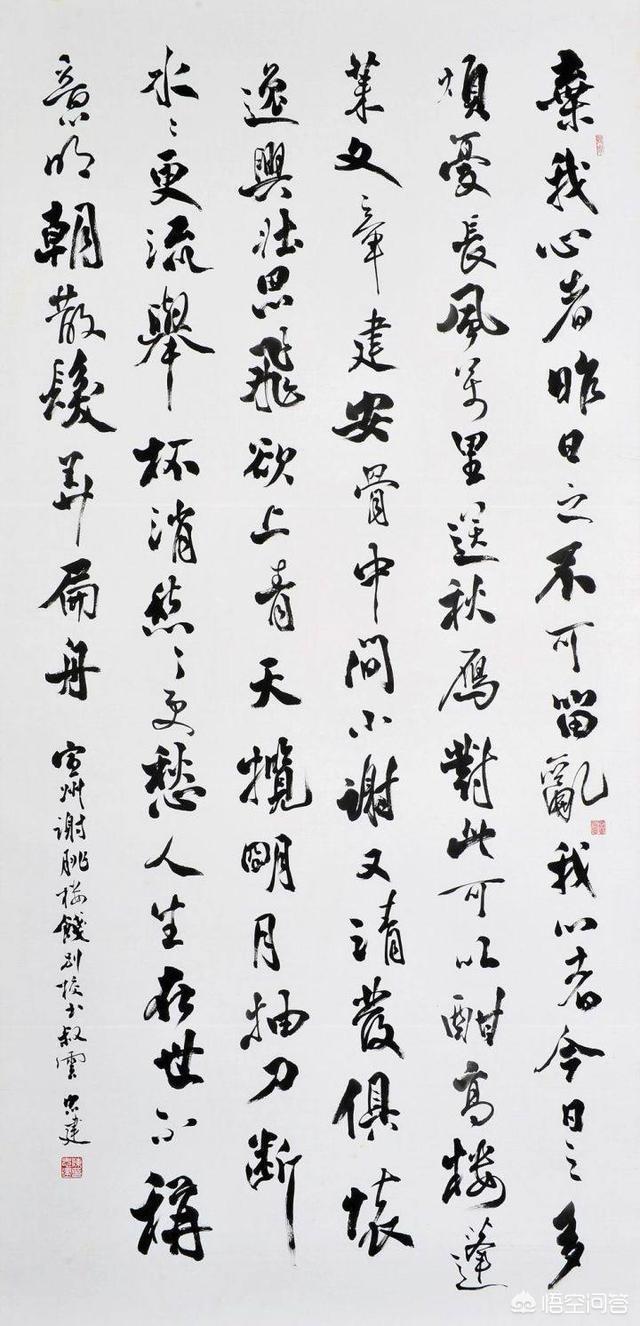 棄我心者昨日之不可留亂我心者今日之多
煩憂長風萬里送秋鴈對此可以酣高樓蓬
萊文章建安骨中間小謝又清發俱懷
逸興壯思飛欲上青天攬明月抽刀斷
水〻更流舉杯消愁〻更愁人生在世不稱
意明朝散髮弄扁舟
宣州謝朓樓餞別校書叔雲 建
悟空问答